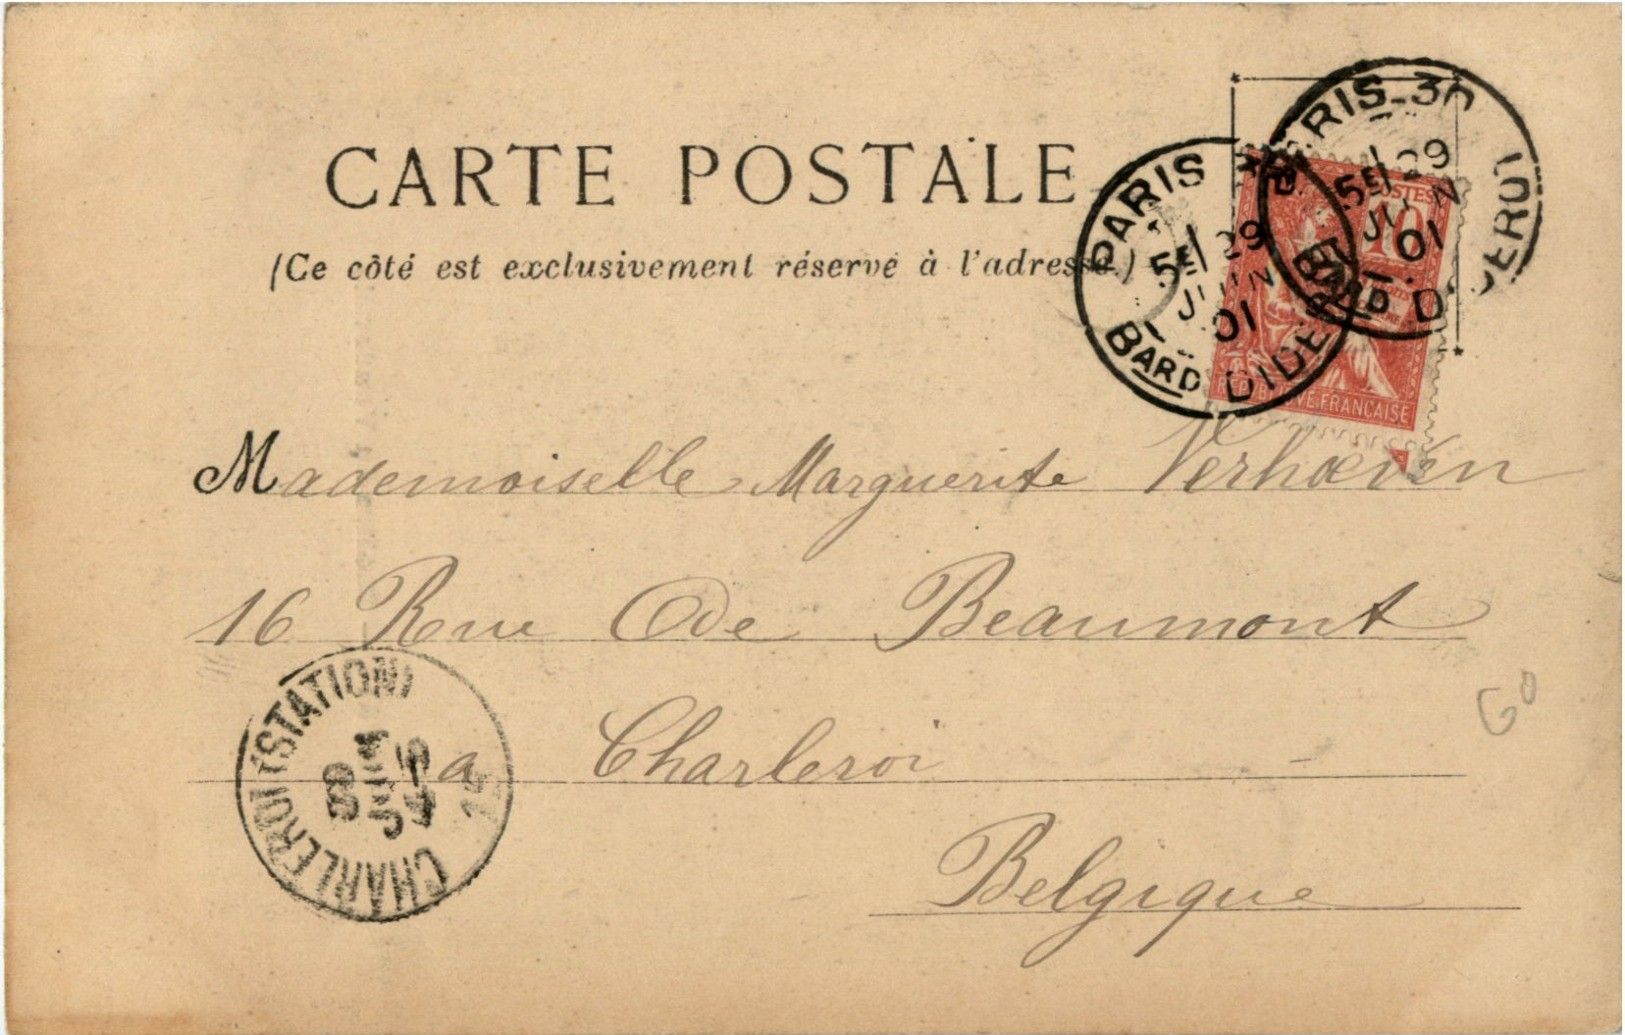 CARTE POSTALE
(Ce côté est exclusivement réservé à l'adresse.)
PARIS
5E 29
JUIN
01
BARD DIDEROT
PARIS_30
5E 29
JUIN
01
BARD DIDEROT
POSTES
10
REPUBLIQUE FRANÇAISE
Mademoiselle Marguerite Verhœven
16 Rue De Beaumont
a Charleroi
Belgique
CHARLEROI (STATION)
60